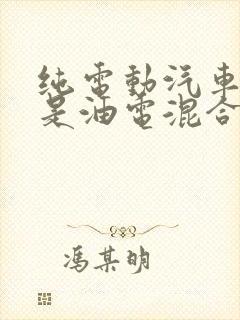 纯電動汽車
是油電混合
馮某明